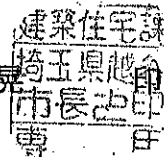 建築住宅課
埼玉県越谷
市長之印
専用
印